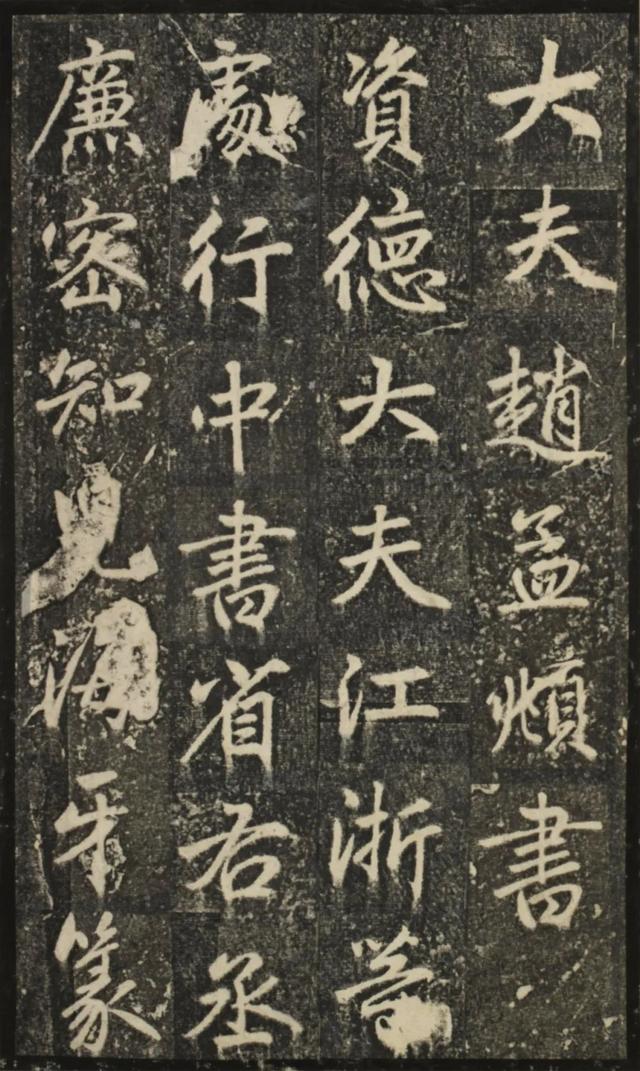 大夫趙孟頫書
資德大夫江浙等
處行中書省右丞
廉密知兒海牙篆